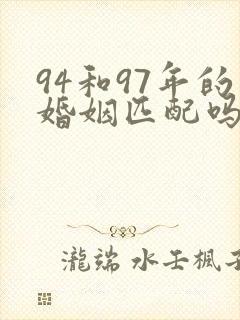 94和97年的
婚姻匹配吗
瀧端 水壬楓子